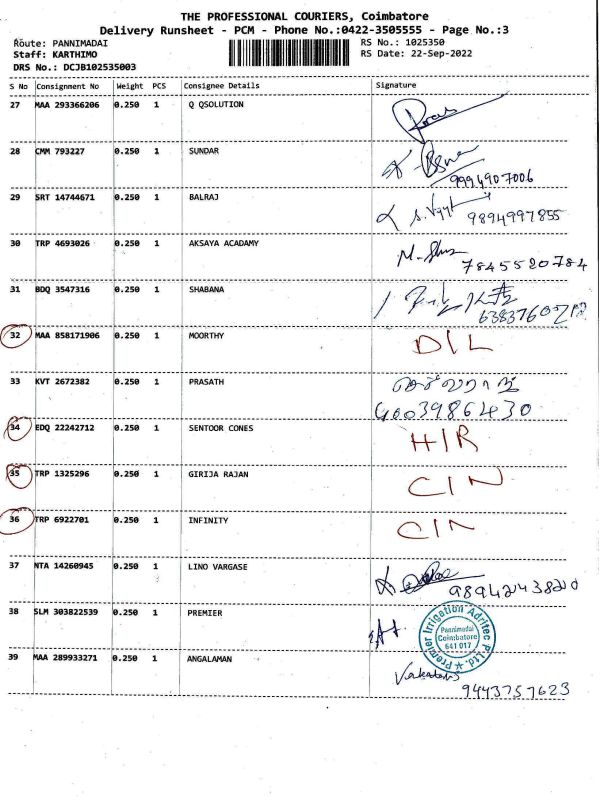 THE PROFESSIONAL COURIERS, Coimbatore
Delivery Runsheet - PCM - Phone No.:0422-3505555 - Page No.:3
Route: PANNIMADAI
RS No.: 1025350
Staff: KARTHIMO
RS Date: 22-Sep-2022
DRS No.: DCJB102535003
S No Consignment No Weight PCS Consignee Details Signature
27 MAA 293366206 0.250 1 Q QSOLUTION
28 CMM 793227 0.250 1 SUNDAR
9994907006
29 SRT 14744671 0.250 1 BALRAJ
9894997855
30 TRP 4693026 0.250 1 AKSAYA ACADAMY
7845520784
31 BDQ 3547316 0.250 1 SHABANA
32 MAA 858171906 0.250 1 MOORTHY D/L
33 KVT 2672382 0.250 1 PRASATH
34 EDQ 22242712 0.250 1 SENTOOR CONES H/R
35 TRP 1325296 0.250 1 GIRIJA RAJAN C/N
36 TRP 6922701 0.250 1 INFINITY C/N
37 NTA 14260945 0.250 1 LINO VARGASE
38 SLM 303822539 0.250 1 PREMIER
Premier Irrigation Adritec P Ltd.
Pannimadai
Coimbatore
641 017
39 MAA 289933271 0.250 1 ANGALAMAN
9443757623